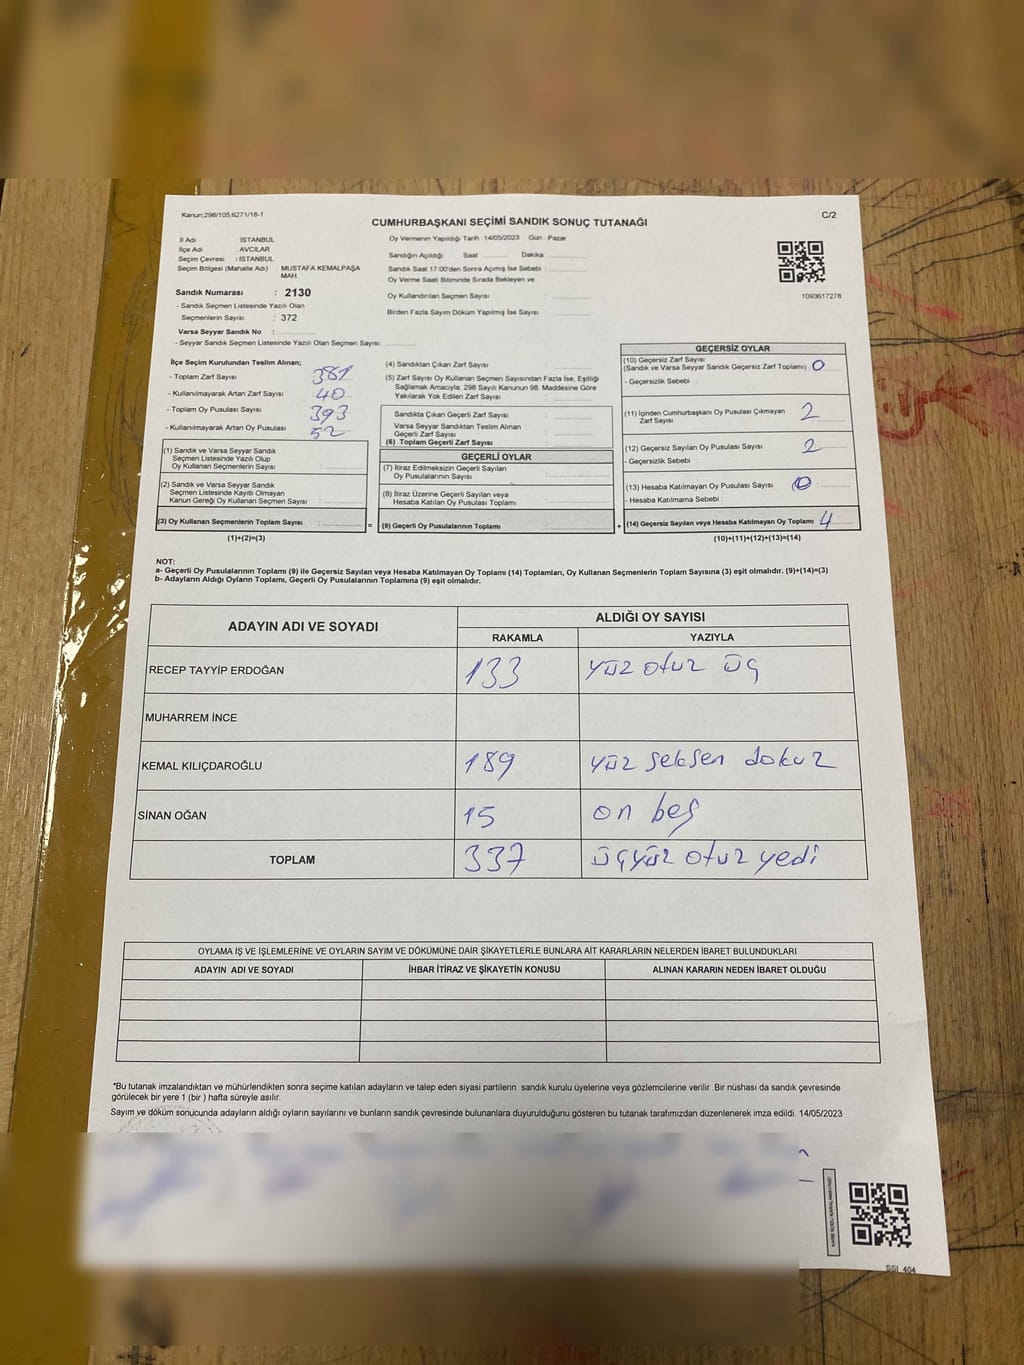 Kanun;298/105,6271/18-1
C/2
CUMHURBAŞKANI SEÇİMİ SANDIK SONUÇ TUTANAĞI
İl Adı : İSTANBUL
İlçe Adı : AVCILAR
Seçim Çevresi : İSTANBUL
Seçim Bölgesi (Mahalle Adı) MUSTAFA KEMALPAŞA MAH.
Sandık Numarası : 2130
- Sandık Seçmen Listesinde Yazılı Olan
Seçmenlerin Sayısı : 372
Varsa Seyyar Sandık No :
- Seyyar Sandık Seçmen Listesinde Yazılı Olan Seçmen Sayısı:
Oy Vermenin Yapıldığı Tarih :14/05/2023 Gün : Pazar
Sandığın Açıldığı Saat Dakika
Sandık Saat 17:00'den Sonra Açımış İse Sebebi :
Oy Verme Saati Bitiminde Sırada Bekleyen ve
Oy Kullandırılan Seçmen Sayısı :
Birden Fazla Sayım Döküm Yapılmış İse Sayısı :
1093617278
İlçe Seçim Kurulundan Teslim Alınan;
- Toplam Zarf Sayısı : 381
- Kullanılmayarak Artan Zarf Sayısı : 40
- Toplam Oy Pusulası Sayısı : 393
- Kullanılmayarak Artan Oy Pusulası : 52
(1) Sandık ve Varsa Seyyar Sandık
Seçmen Listesinde Yazılı Olup
Oy Kullanan Seçmenlerin Sayısı :
(2) Sandık ve Varsa Seyyar Sandık
Seçmen Listesinde Kayıtlı Olmayan
Kanun Gereği Oy Kullanan Seçmen Sayısı :
(3) Oy Kullanan Seçmenlerin Toplam Sayısı : =
(1)+(2)=(3)
(4) Sandıktan Çıkan Zarf Sayısı :
(5) Zarf Sayısı Oy Kullanan Seçmen Sayısından Fazla İse, Eşitliği
Sağlamak Amacıyla; 298 Sayılı Kanunun 98. Maddesine Göre
Yakılarak Yok Edilen Zarf Sayısı :
Sandıkta Çıkan Geçerli Zarf Sayısı :
Varsa Seyyar Sandıktan Teslim Alınan
Geçerli Zarf Sayısı :
(6) Toplam Geçerli Zarf Sayısı :
GEÇERLİ OYLAR
(7) İtiraz Edilmeksizin Geçerli Sayılan
Oy Pusulasının Sayısı :
(8) İtiraz Üzerine Geçerli Sayılan veya
Hesaba Katılan Oy Pusulası Toplamı :
(9) Geçerli Oy Pusulalarının Toplamı : +
GEÇERSİZ OYLAR
(10) Geçersiz Zarf Sayısı
(Sandık ve Varsa Seyyar Sandık Geçersiz Zarf Toplamı) : 0
- Geçersizlik Sebebi :
(11) İçinden Cumhurbaşkanı Oy Pusulası Çıkmayan
Zarf Sayısı : 2
(12) Geçersiz Sayılan Oy Pusulası Sayısı : 2
- Geçersizlik Sebebi :
(13) Hesaba Katılmayan Oy Pusulası Sayısı : 0
- Hesaba Katılmama Sebebi :
(14) Geçersiz Sayılan veya Hesaba Katılmayan Oy Toplamı : 4
(10)+(11)+(12)+(13)=(14)
NOT:
a- Geçerli Oy Pusulalarının Toplamı (9) ile Geçersiz Sayılan veya Hesaba Katılmayan Oy Toplamı (14) Toplamları, Oy Kullanan Seçmenlerin Toplam Sayısına (3) eşit olmalıdır. (9)+(14)=(3)
b- Adayların Aldığı Oyların Toplamı, Geçerli Oy Pusulalarının Toplamına (9) eşit olmalıdır.
ADAYIN ADI VE SOYADI
ALDIĞI OY SAYISI
RAKAMLA YAZIYLA
RECEP TAYYİP ERDOĞAN 133 yüz otuz üç
MUHARREM İNCE
KEMAL KILIÇDAROĞLU 189 yüz seksen dokuz
SİNAN OĞAN 15 on beş
TOPLAM 337 üçyüz otuz yedi
OYLAMA İŞ VE İŞLEMLERİNE VE OYLARIN SAYIM VE DÖKÜMÜNE DAİR ŞİKAYETLERLE BUNLARA AİT KARARLARIN NELERDEN İBARET BULUNDUKLARI
ADAYIN ADI VE SOYADI İHBAR İTİRAZ VE ŞİKAYETİN KONUSU ALINAN KARARIN NEDEN İBARET OLDUĞU
*Bu tutanak imzalandıktan ve mühürlendikten sonra seçime katılan adayların ve talep eden siyasi partilerin sandık kurulu üyelerine veya gözlemcilerine verilir .Bir nüshası da sandık çevresinde
görülecek bir yere 1 (bir ) hafta süreyle asılır.
Sayım ve döküm sonucunda adayların aldığı oyların sayılarını ve bunların sandık çevresinde bulunanlara duyurulduğunu gösteren bu tutanak tarafımızdan düzenlenerek imza edildi. 14/05/2023
SSI_404